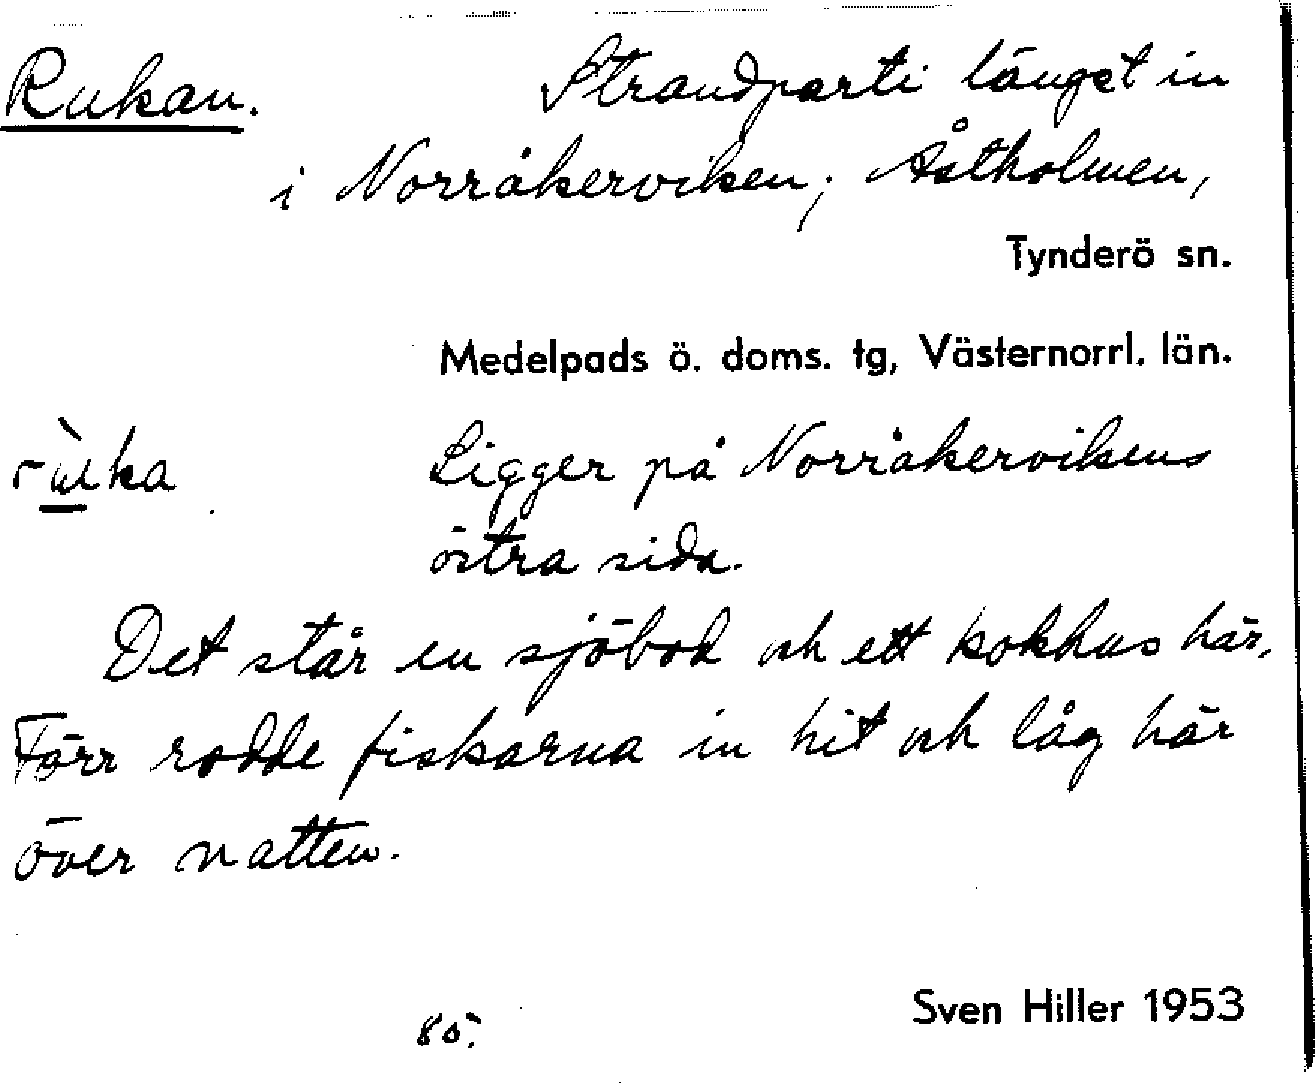 Rukan. Strandparti längst in
i Norråkerviken, Åstholmen,
Tynderö sn.
Medelpads ö. doms. tg, Västernorrl. län.
rùka Ligger på Norråkervikens
östra sida.
Det står en sjöbod och ett kokhus här.
Förr rodde fiskarna in hit och låg här
över natten.
Sven Hiller 1953